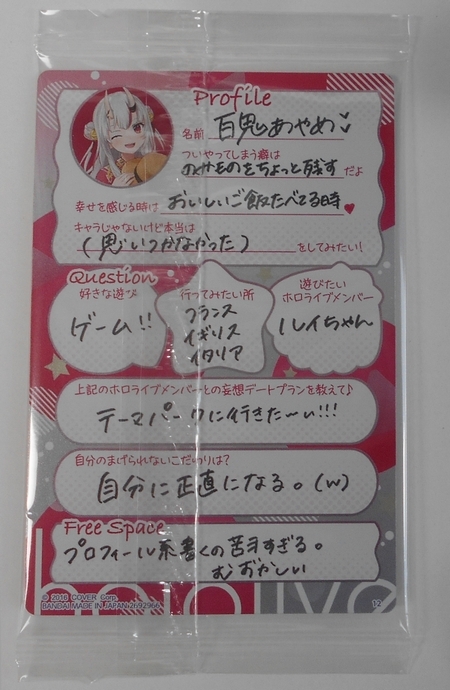 Profile
名前 百鬼あやめ
ついやってしまう癖は
のみものをちょっと残す だよ
幸せを感じる時は おいしいご飯たべてる時 ♥
キャラじゃないけど本当は
(思いつかなかった) をしてみたい!
Question
好きな遊び
ゲーム!!
行ってみたい所
フランス
イギリス
イタリア
遊びたい
ホロライブメンバー
ルイちゃん
上記のホロライブメンバーとの妄想デートプランを教えて♪
テーマパークに行きた〜い!!!
自分のまげられないこだわりは?
自分に正直になる。(w)
Free Space
プロフィール系書くの苦手すぎる。
むずかしい
hololive
© 2016 COVER Corp.
BANDAI MADE IN JAPAN 2692966
12